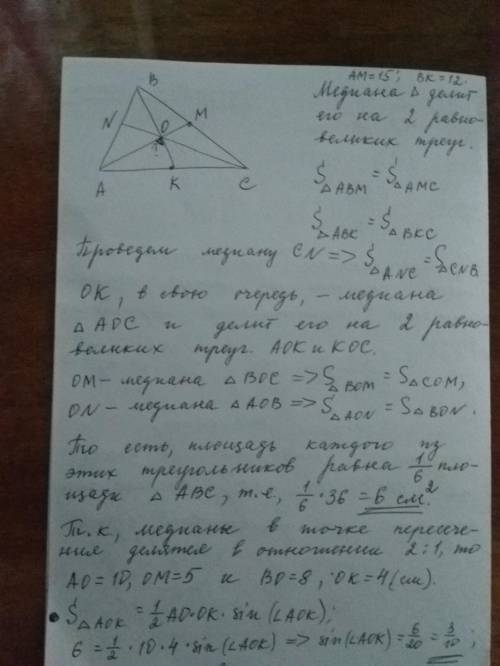 AM=15; BK=12.
B
Медиана △ делит
его на 2 равно-
великих треуг.
N
M
O
?
A
K
C
S△ABM = S△AMC
S△ABK = S△BKC
Проведем медиану CN => S△ANC = S△CNB
OK, в свою очередь, – медиана
△ AOC и делит его на 2 равно-
великих треуг. AOK и KOC.
OM – медиана △ BOC => S△BOM = S△COM,
ON – медиана △ AOB => S△AON = S△BON.
То есть, площадь каждого из
этих треугольников равна 1/6 пло-
щади △ ABC, т.е, 1/6 · 36 = 6 см².
Т.к, медианы в точке пересече-
ния делятся в отношении 2:1, то
AO=10, OM=5 и BO=8, OK=4 (см).
S△AOK = 1/2 AO·OK·sin(∠AOK);
6 = 1/2 · 10 · 4 · sin(∠AOK) => sin(∠AOK) = 6/20 = 3/10;